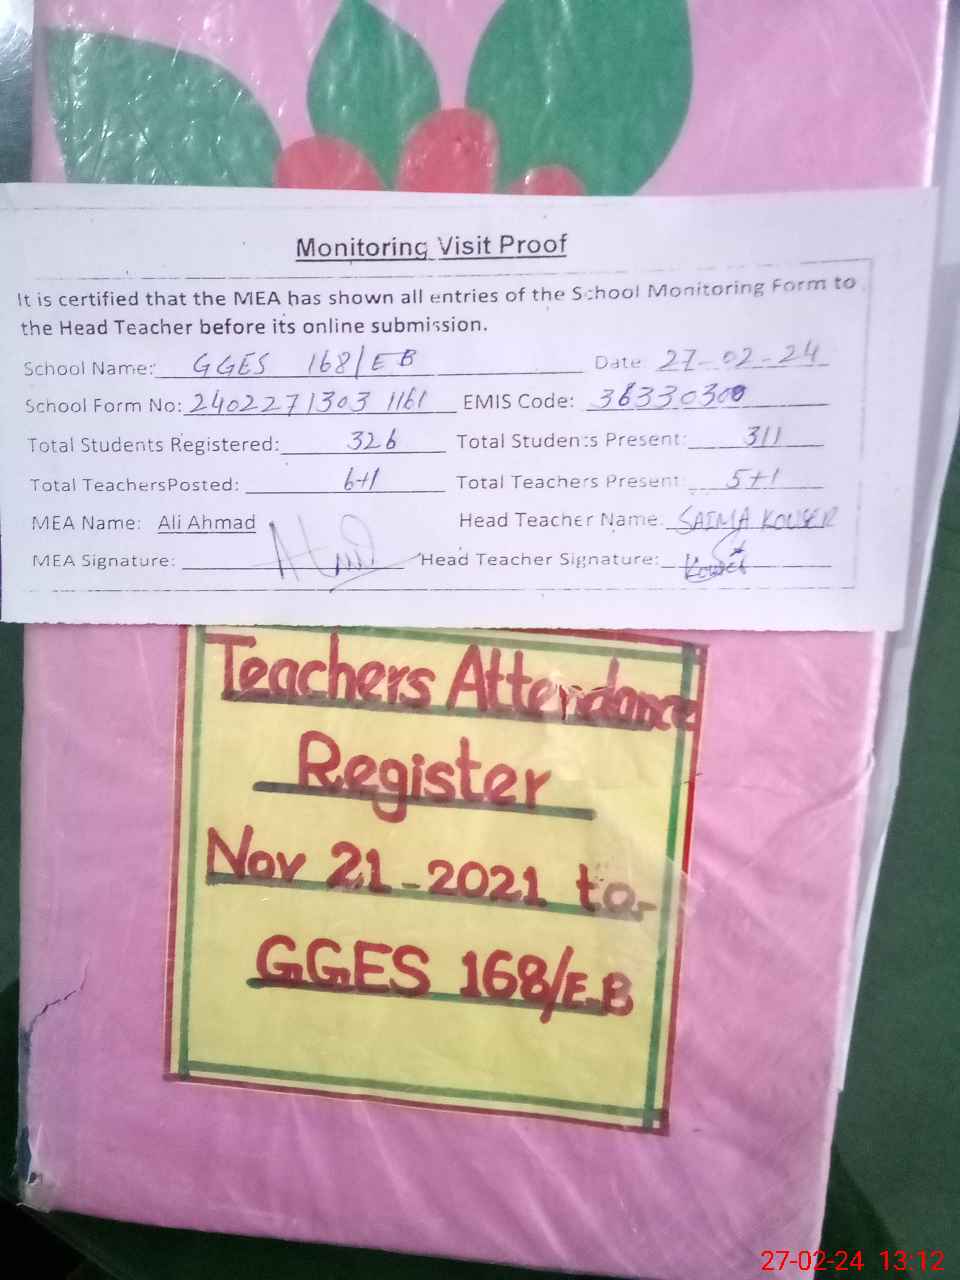 Monitoring Visit Proof
It is certified that the MEA has shown all entries of the School Monitoring Form to
the Head Teacher before its online submission.
School Name: GGES 168/EB Date: 27-02-24
School Form No: 2402271303 1161 EMIS Code: 36330300
Total Students Registered: 326 Total Students Present: 311
Total TeachersPosted: 6+1 Total Teachers Present: 5+1
MEA Name: Ali Ahmad Head Teacher Name: SAIMA KOUSER
MEA Signature: Head Teacher Signature: Kouser
Teachers Attendance
Register
Nov 21-2021 to-
GGES 168/E.B
27-02-24 13:12